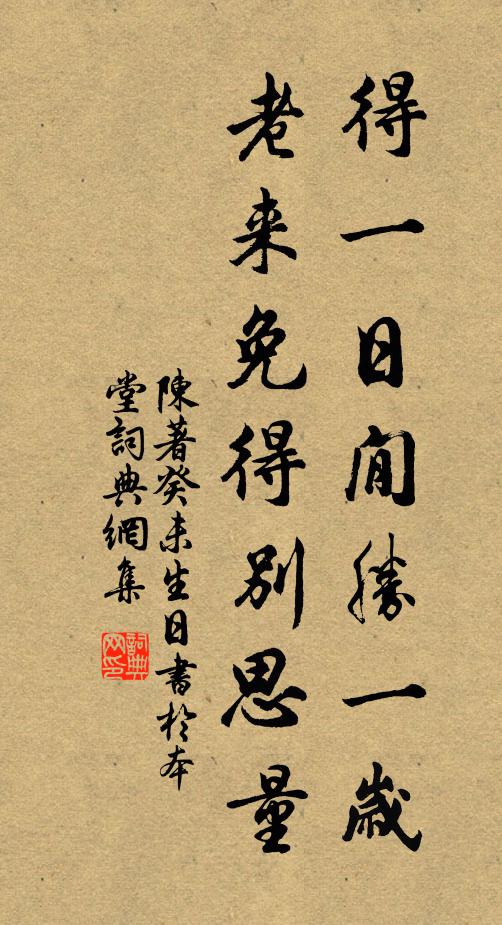 得一日閒勝一歲
老来免得別思量
陳著癸未生日書於本
堂詞典網集
詞典网印